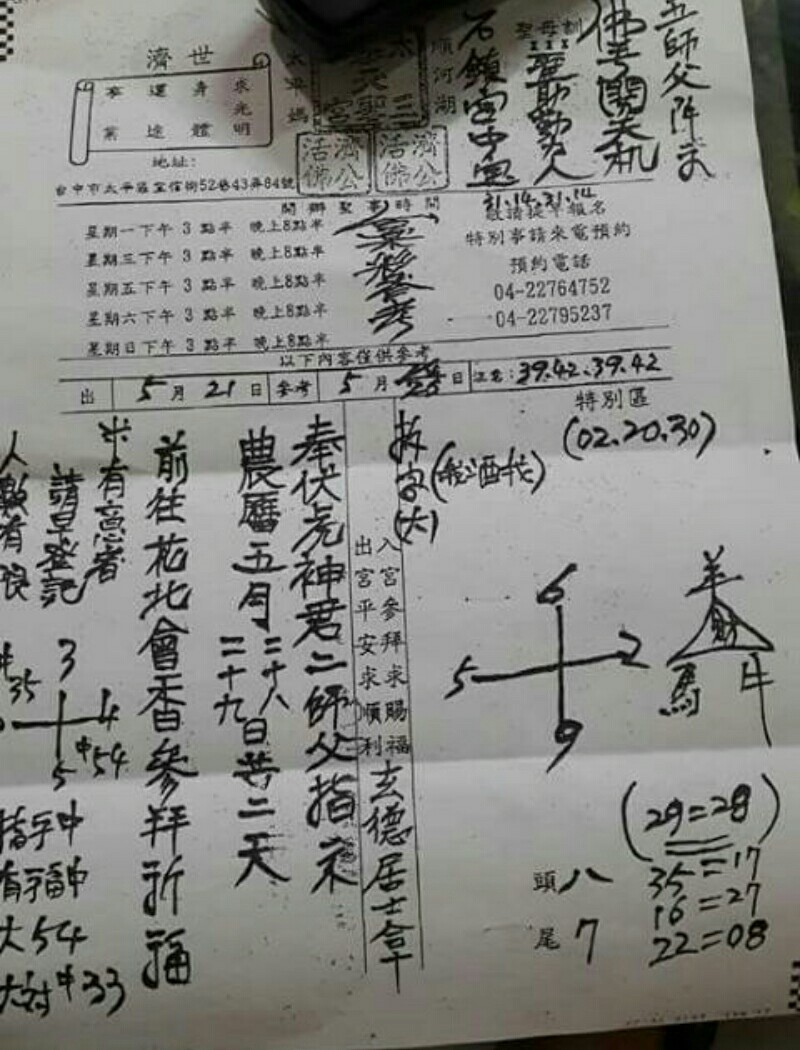 五師父降示
佛手開天机
聖母訓
聖助勤人
石鎮宮中寓
31.14.31.14
順河湖
太平媽
三天宮
濟公活佛
濟公活佛
濟世
求光明
身體
運途
事業
地址:
台中市太平區宜信街52巷43弄84號
開辦聖事時間
星期一下午 3 點半 晚上8點半
星期三下午 3 點半 晚上8點半
星期五下午 3 點半 晚上8點半
星期六下午 3 點半 晚上8點半
星期日下午 3 點半 晚上8點半
敬請提早報名
特別事請來電預約
預約電話
04-22764752
04-22795237
以下內容僅供參考
出 5 月 21 日 參考 5 月 日 39.42.39.42
特別區
(02.20.30)
拆字
(大)
入宮參拜求賜福
出宮平安求順利
玄德居士拿
奉伏虎神君二師父指示
農曆五月二十八
二十九日共二天
前往花北會香參拜祈福
有意者
請早登記
人數有限
6
5 2
9
羊
財
馬 牛
(29=28)
35=17
16=27
22=08
頭 八
尾 7
35
3
4
5
中54
指手中
有福中
大54
大対中33